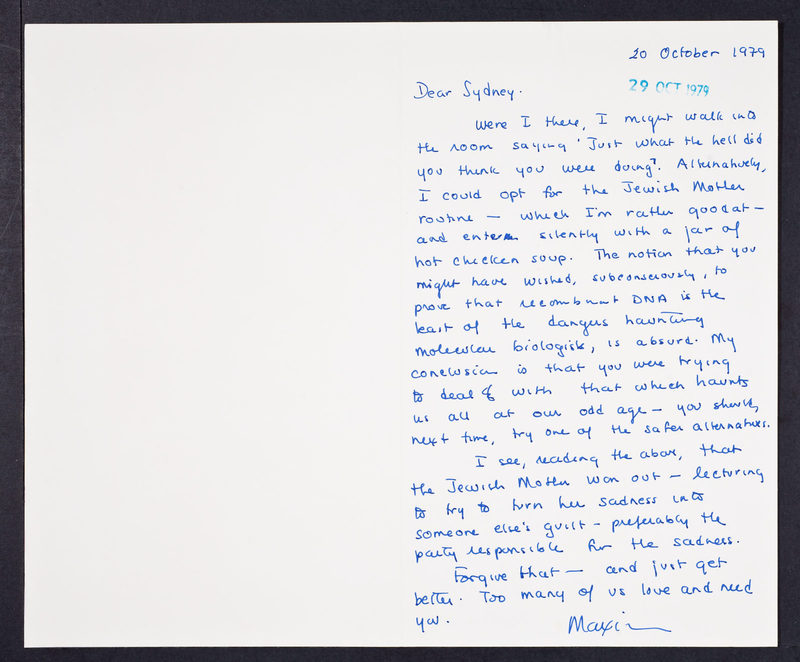 20 October 1979
29 OCT 1979
Dear Sydney.
Were I there, I might walk into
the room saying 'Just what the hell did
you think you were doing?'. Alternatively,
I could opt for the Jewish Mother
routine — which I'm rather good at —
and enter silently with a jar of
hot chicken soup. The notion that you
might have wished, subconsciously, to
prove that recombinant DNA is the
least of the dangers haunting
molecular biologists, is absurd. My
conclusion is that you were trying
to deal with that which haunts
us all at our odd age — you should,
next time, try one of the safer alternatives.
I see, reading the above, that
the Jewish Mother won out — lecturing
to try to turn her sadness into
someone else's guilt — preferably the
party responsible for the sadness.
Forgive that — and just get
better. Too many of us love and need
you.
Maxine